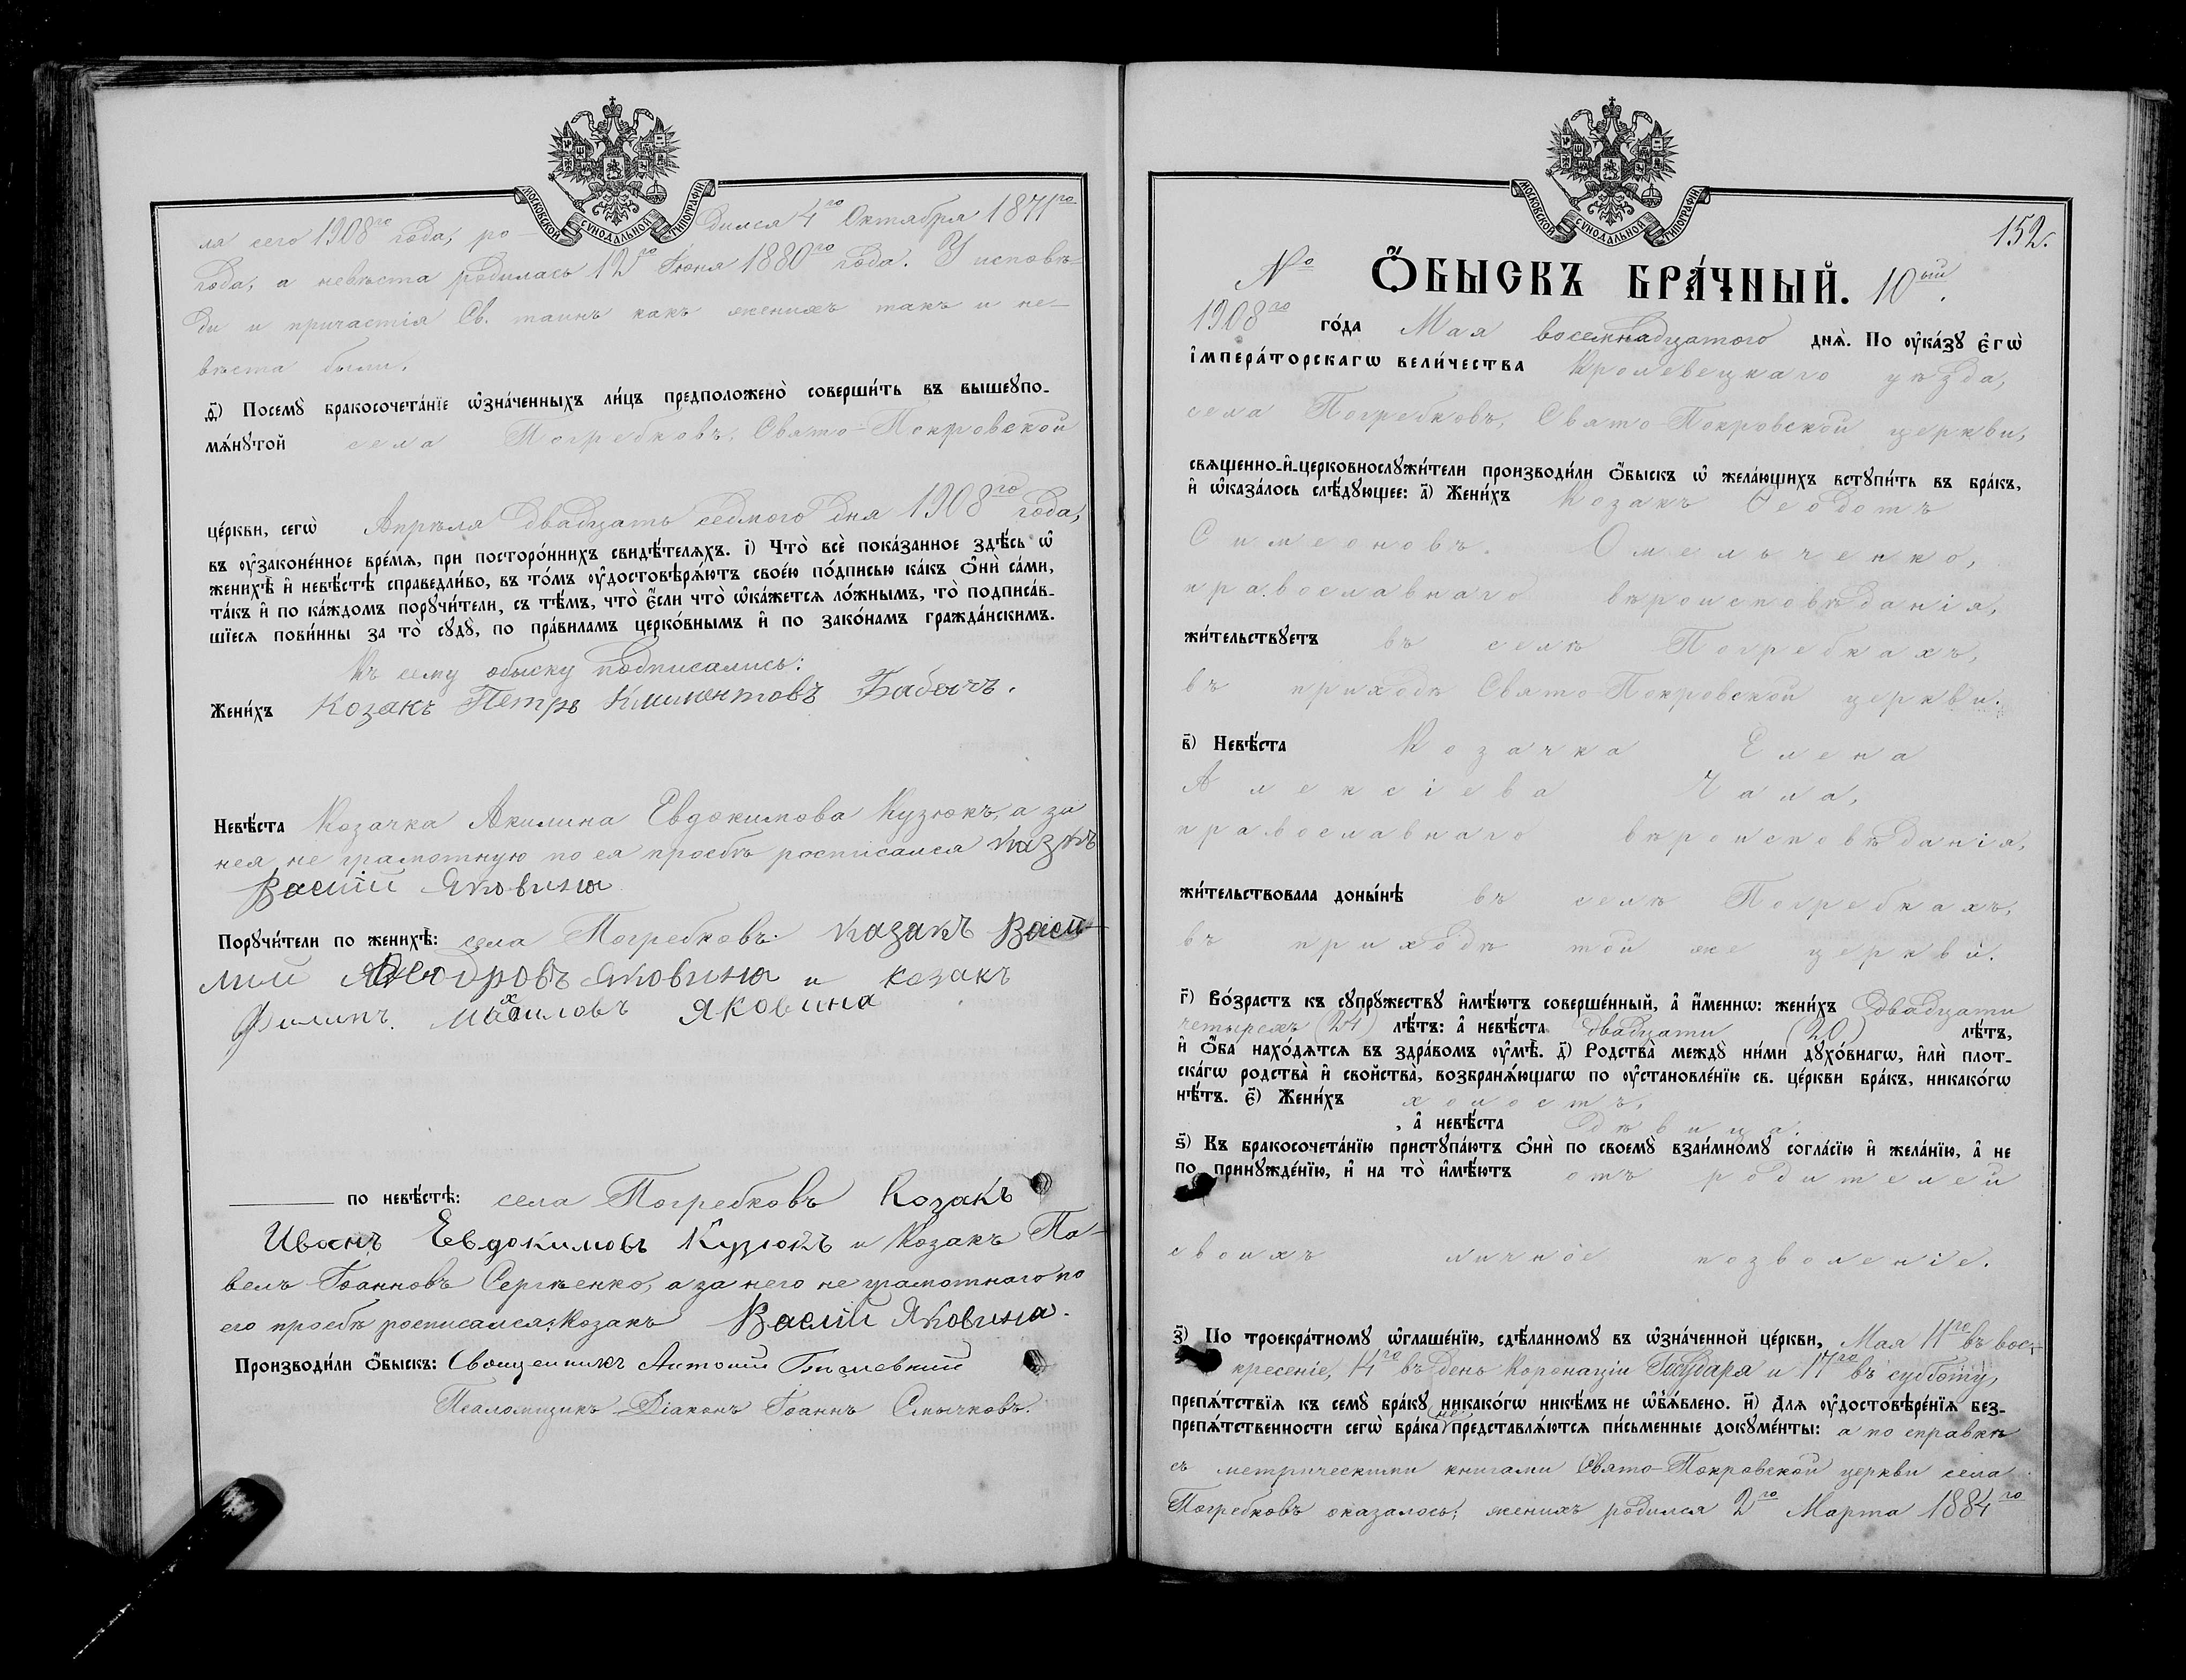 МОСКОВСКОЙ СУНОДАЛЬНОЙ ТИПОГРАФІИ
ля сего 1908го года, ро-дился 4го Октября 1871го
года, а невѣста родилась 12го Іюня 1880го года. У исповѣ-
ди и причастія Св. таинъ какъ женихъ такъ и не-
вѣста были.
д҃і) Посемꙋ̀ бракосочета́нїе ѡ҆зна́ченныхъ ли́цъ предположено̀ соверши́ть въ вышеꙋпо-
мѧ́нꙋтой села Погребковъ, Свято-Покровской
це́ркви, сегѡ̀ Апрѣля двадцать седмого дня 1908го года,
въ ᲂу҆законе́нное вре́мѧ, при посторо́ннихъ свидѣ́телѧхъ. і҃) Что̀ всѐ пока́занное здѣ́сь ѡ҆
женихѣ̀ и҆ невѣ́стѣ справедли́во, въ то́мъ ᲂу҆достовѣрѧ́ютъ свое́ю по́дписью ка́къ ѻ҆нѝ са́ми,
та́къ и҆ по ка́ждомъ порꙋчи́тели, съ тѣ́мъ, что̀ є҆́сли что̀ ѡ҆ка́жетсѧ ло́жнымъ, то̀ подписа́в-
шїесѧ пови́нны за то̀ сꙋдꙋ̀, по пра́виламъ церко́внымъ и҆ по зако́намъ гражда́нскимъ.
Къ сему обыску подписались:
Жени́хъ Козакъ Петръ Климентовъ Бабичъ.
Невѣ́ста Козачка Акилина Евдокимова Кузюкъ, а за
нея не грамотную по ея просьбѣ росписался казкъ
Васлій Яковина
Порꙋчи́тели по женихѣ̀: села Погребковъ. казакъ Васи-
лий Ѳеодровъ Яковина и козакъ
Филипъ. Михаиловъ Яковина
по невѣ́стѣ: села Погребковъ Козакъ
Иванъ Евдокимовъ Кузюкъ и Козакъ Па-
велъ Іоанновъ Сергѣенко, а за него не грамотнаго по
его просьбѣ росписался: Козакъ Васлій Яковина.
Производи́ли ѻ҆́быскъ: Священникъ Антоній
Псаломщикъ-Діаконъ Іоаннъ Смычковъ.
МОСКОВСКОЙ СУНОДАЛЬНОЙ ТИПОГРАФІИ
152.
No Ѻ҆́БЫСКЪ БРА́ЧНЫЙ. 10ый.
1908го го́да Мая восемнадцатого днѧ̀. По ᲂу҆ка́зꙋ є҆гѡ̀
і҆мпера́торскагѡ вели́чества Кролевецкаго уѣзда,
села Погребковъ, Свято-Покровской церкви,
свѧщенно-и҆-церковнослꙋжи́тели производи́ли ѻ҆́быскъ ѡ҆ жела́ющихъ встꙋпи́ть въ бра́къ,
и҆ ѡ҆каза́лось слѣ́дꙋющее: а҃) Жени́хъ Козакъ Ѳеодотъ
Симеоновъ. Омельченко,
православнаго вѣроисповѣданія,
жи́тельствꙋетъ въ селѣ Погребкахъ,
въ приходѣ Свято-Покровской церкви.
в҃) Невѣ́ста Козачка Елена
Алексіева Чала,
православнаго вѣроисповѣданія,
жи́тельствовала доны́нѣ въ селѣ Погребкахъ,
въ приходѣ той же церкви.
г҃) Во́зрастъ къ сꙋпрꙋ́жествꙋ и҆мѣ́ютъ соверше́нный, а҆ и҆́меннѡ: жени́хъ двадцати
четырехъ (24) лѣ́тъ: а҆ невѣ́ста двадцати (20) лѣ́тъ,
и҆ ѻ҆́ба нахо́дѧтсѧ въ здра́вомъ ᲂу҆мѣ̀. д҃) Родства̀ междꙋ̀ ни́ми дꙋхо́внагѡ, и҆лѝ плот-
ска́гѡ родства̀ и҆ свойства̀, возбранѧ́ющагѡ по ᲂу҆становле́нїю св. це́ркви бра́къ, никако́гѡ
нѣ́тъ. є҃) Жени́хъ холостъ,
, а҆ невѣ́ста дѣвица.
ѕ҃) Къ бракосочета́нїю пристꙋпа́ютъ ѻ҆нѝ по своемꙋ̀ взаи́мномꙋ согла́сїю и҆ жела́нїю, а҆ не
по принꙋжде́нїю, и҆ на то̀ и҆мѣ́ютъ отъ родителей
своихъ личное позволеніе.
з҃) По троекра́тномꙋ ѡ҆глаше́нїю, сдѣ́ланномꙋ въ ѡ҆зна́ченной це́ркви, Мая 11го въ вос-
кресеніе, 14го въ день Коронаціи Государя и 17го въ субботу,
препѧ́тствїѧ къ семꙋ̀ бра́кꙋ никако́гѡ никѣ́мъ не ѡ҆б̾ѧ́влено. и҃) Длѧ ᲂу҆достовѣре́нїѧ без-
препѧ́тственности сегѡ̀ бра́ка не представлѧ́ютсѧ пи́сьменные докꙋме́нты: а по справкѣ
съ метрическими книгами Свято-Покровской церкви села
Погребковъ оказалось: женихъ родился 2го Марта 1884го